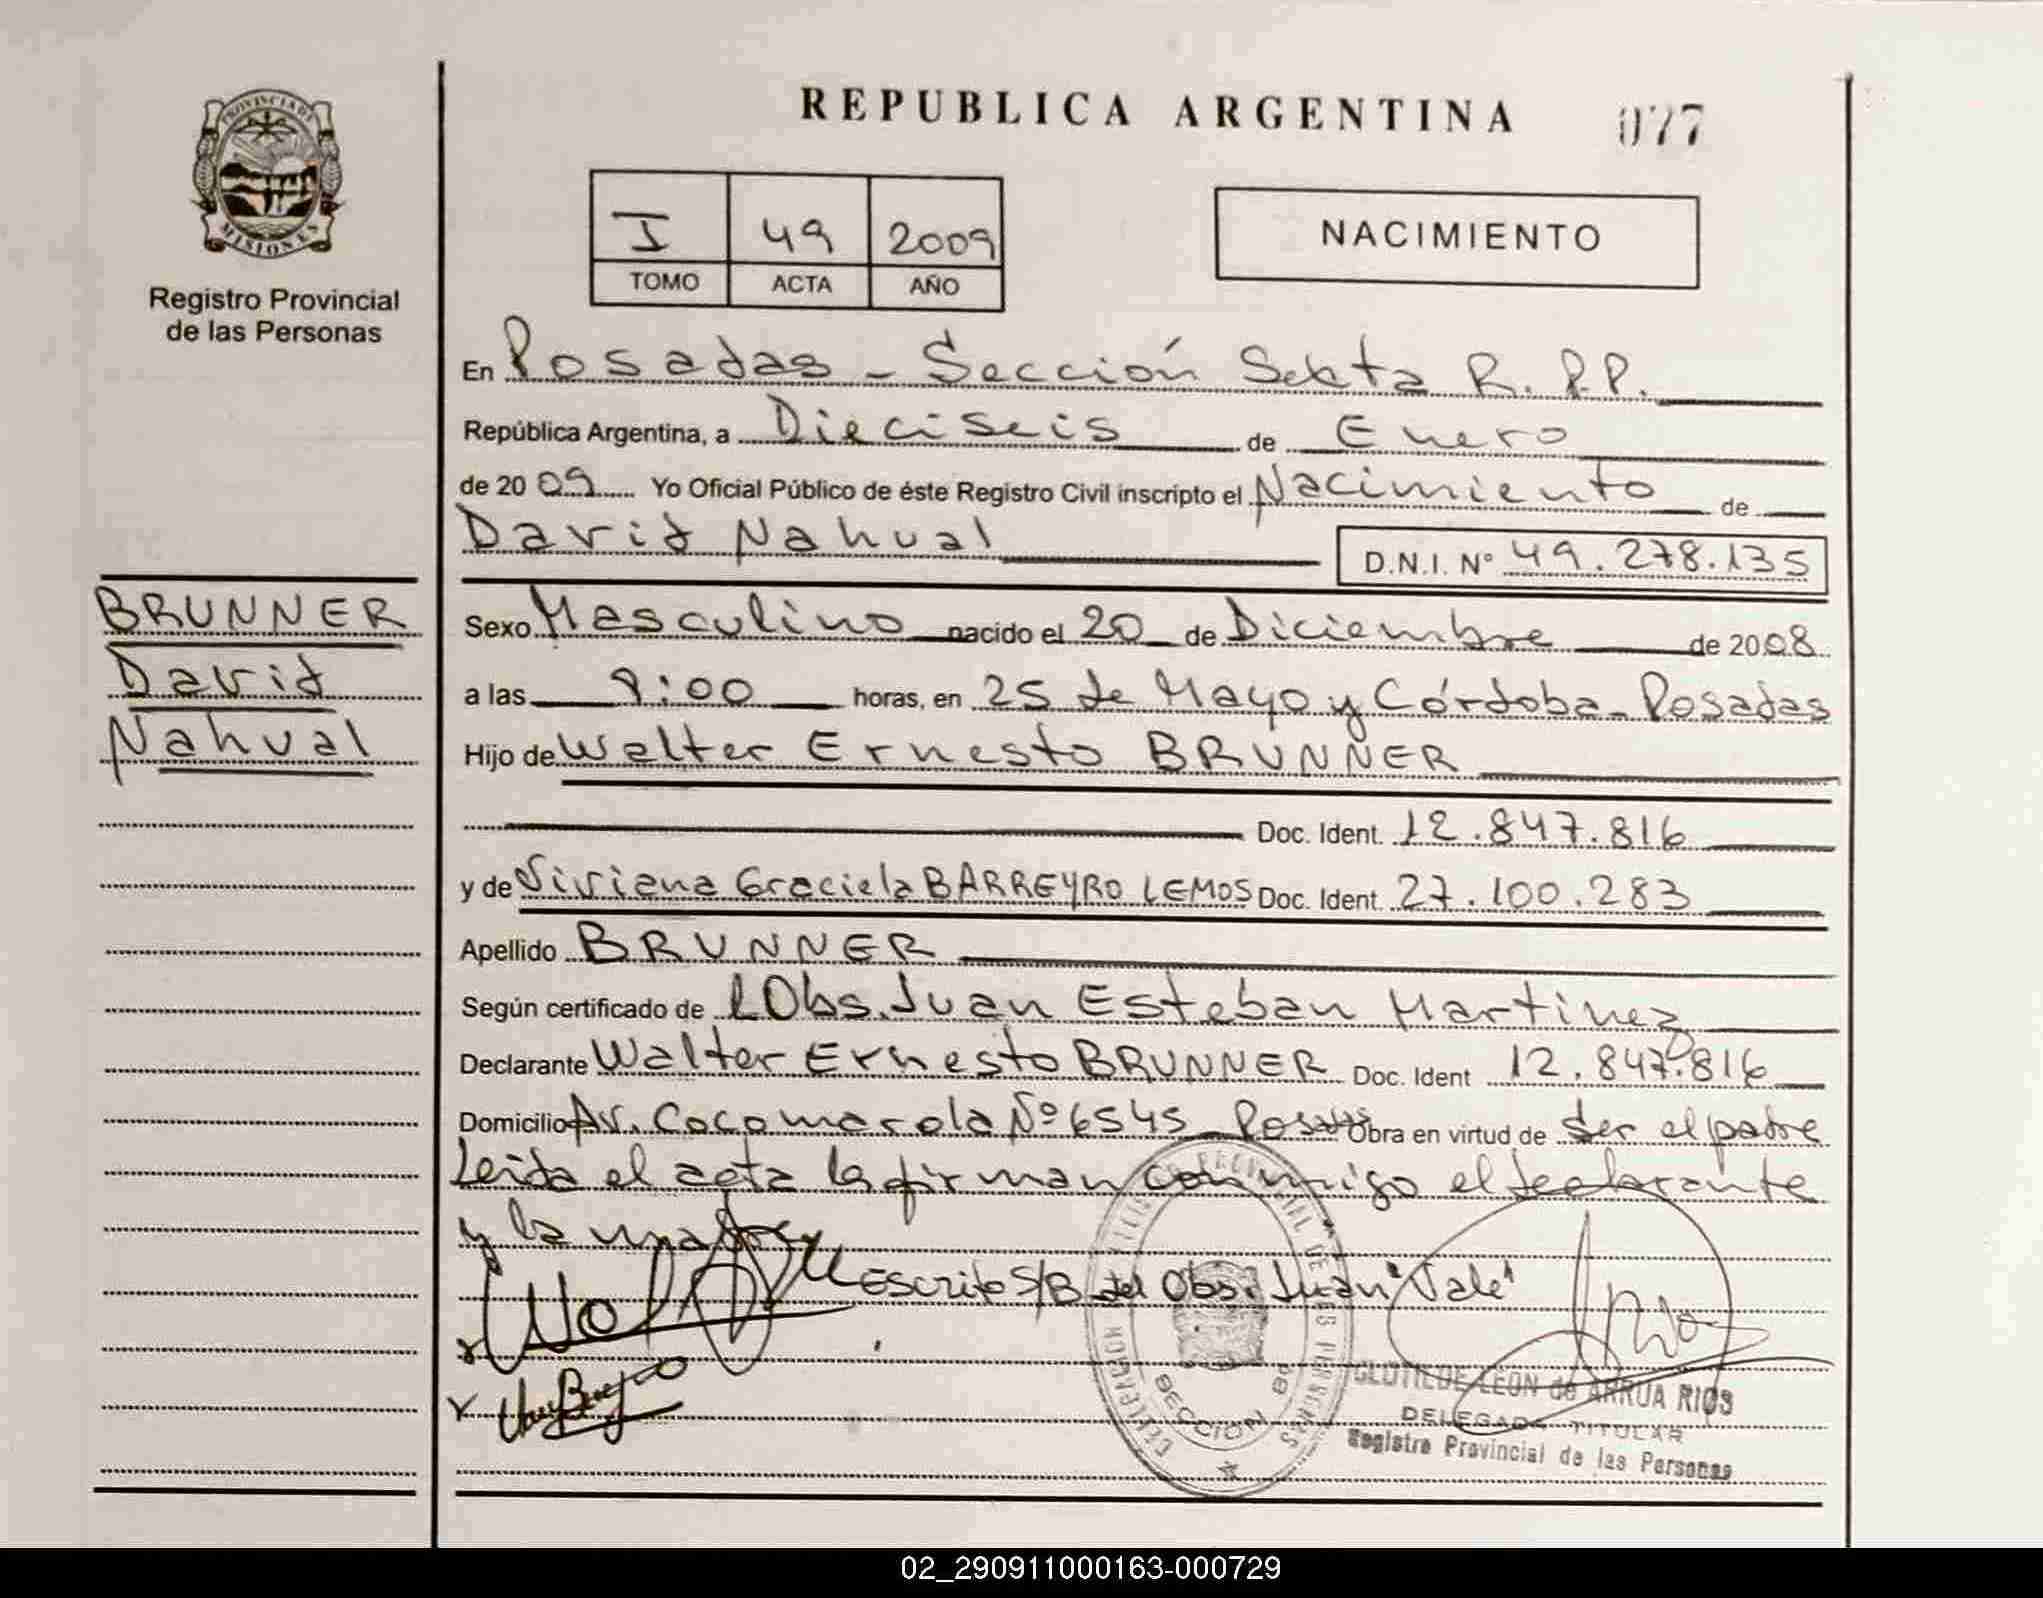 REPUBLICA ARGENTINA
077
PROVINCIA DE
MISIONES
Registro Provincial
de las Personas
I 49 2009
TOMO ACTA AÑO
NACIMIENTO
En Posadas - Sección Sexta R.P.P.
República Argentina, a Dieciseis de Enero
de 2009 Yo Oficial Público de éste Registro Civil inscripto el Nacimiento de
David Nahual
D.N.I. Nº 49.278.135
BRUNNER
David
Nahual
Sexo Masculino nacido el 20 de Diciembre de 2008
a las 9:00 horas, en 25 de Mayo y Córdoba - Posadas
Hijo de Walter Ernesto BRUNNER
Doc. Ident. 12.847.816
y de Viviana Graciela BARREYRO LEMOS Doc. Ident. 27.100.283
Apellido BRUNNER
Según certificado de LObs. Juan Esteban Martinez
Declarante Walter Ernesto BRUNNER Doc. Ident 12.847.816
Domicilio Av. Cocomarola Nº 6545 Posadas Obra en virtud de ser el padre
Leida el acta la firman conmigo el declarante
y la madre
Escrito S/B del Obs. Juan "Vale"
CLOTILDE LEON de ARRUA RIOS
DELEGADA TITULAR
Registro Provincial de las Personas
02_290911000163-000729